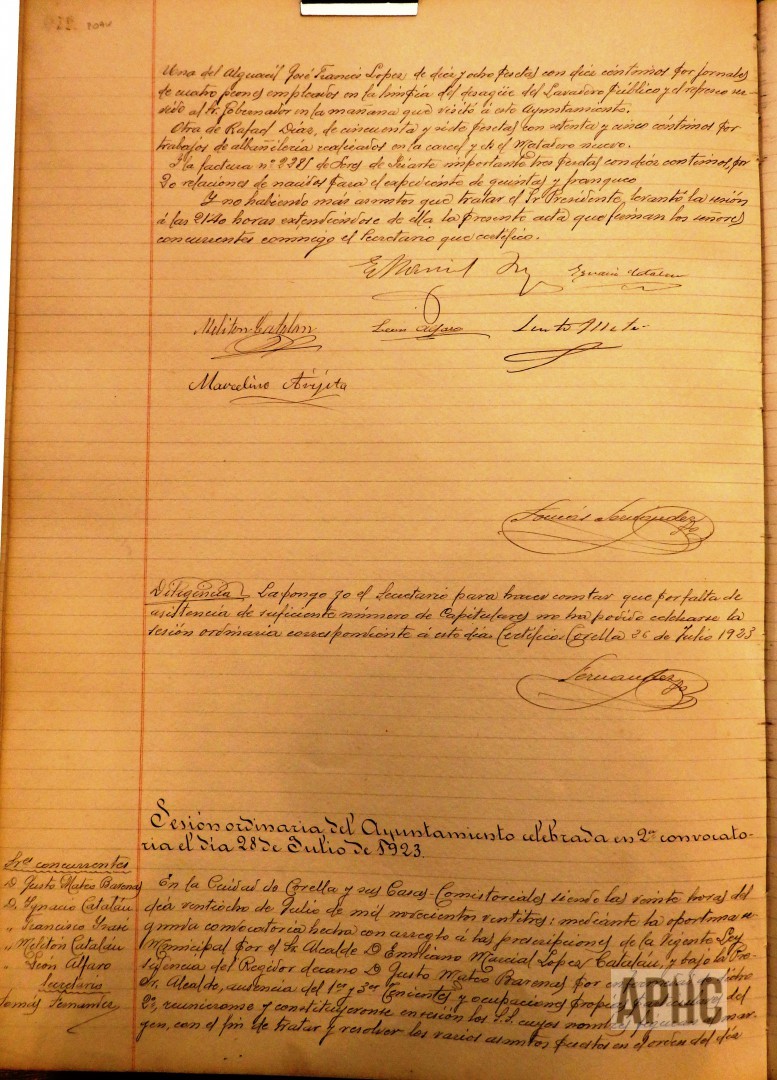 Una del Alguacil José Francés Lopez, de diez y ocho pesetas con diez céntimos por jornales
de cuatro peones empleados en la limpia del desagüe del Lavadero público y el refresco ser-
vido al Sr. Gobernador en la mañana que visitó á este Ayuntamiento.
Otra de Rafael Diaz, de cincuenta y siete pesetas con setenta y cinco céntimos por
trabajos de albañilería realizados en la carcel y en el Matadero nuevo.
Y la factura nº 2285 de Sres de Iriarte importante tres pesetas con diez centimos por
20 relaciones de nacidos para el expediente de quintas y franqueo
Y no habiendo más asuntos que tratar el Sr Presidente, levantó la sesión
á las 21'40 horas extendiéndose de ella la presente acta que firman los señores
concurrentes conmigo el Secretario que certifico.
Ignacio Catalan
Meliton Catalan León Alfaro Justo Mateo
Marcelino Arigita
Tomás Fernandez
Diligencia. La pongo yo el Secretario para hacer constar que por falta de
asistencia de suficiente número de Capitulares no ha podido celebrarse la
sesión ordinaria correspondiente á este día. Certifico. Corella 26 de Julio 1923
Fernandez
Sesión ordinaria del Ayuntamiento celebrada en 2ª convocato-
ria el día 28 de Julio de 1923.
Sres concurrentes
D. Justo Mateo Barenas
D. Ignacio Catalán
„ Francisco
„ Melitón Catalán
„ León Alfaro
Secretario
Tomás Fernandez
En la Ciudad de Corella y sus Casas-Consistoriales siendo las veinte horas del
día ventiocho de Julio de mil novecientos ventitres: mediante la oportuna se-
gunda convocatoria hecha con arreglo á las prescripciones de la vigente Ley
Municipal por el Sr Alcalde D Emiliano Marcial Lopez Catalán, y bajo la Pre-
sidencia del Regidor decano D Justo Mateo Barenas por
Sr. Alcalde, ausencia del 1er y 3er Tenientes y ocupaciones del
2º, reunieronse y constituyeronse en sesión los S.S. cuyos nombres figuran al mar-
gen, con el fin de tratar y resolver los varios asuntos puestos en el orden del día
APHC